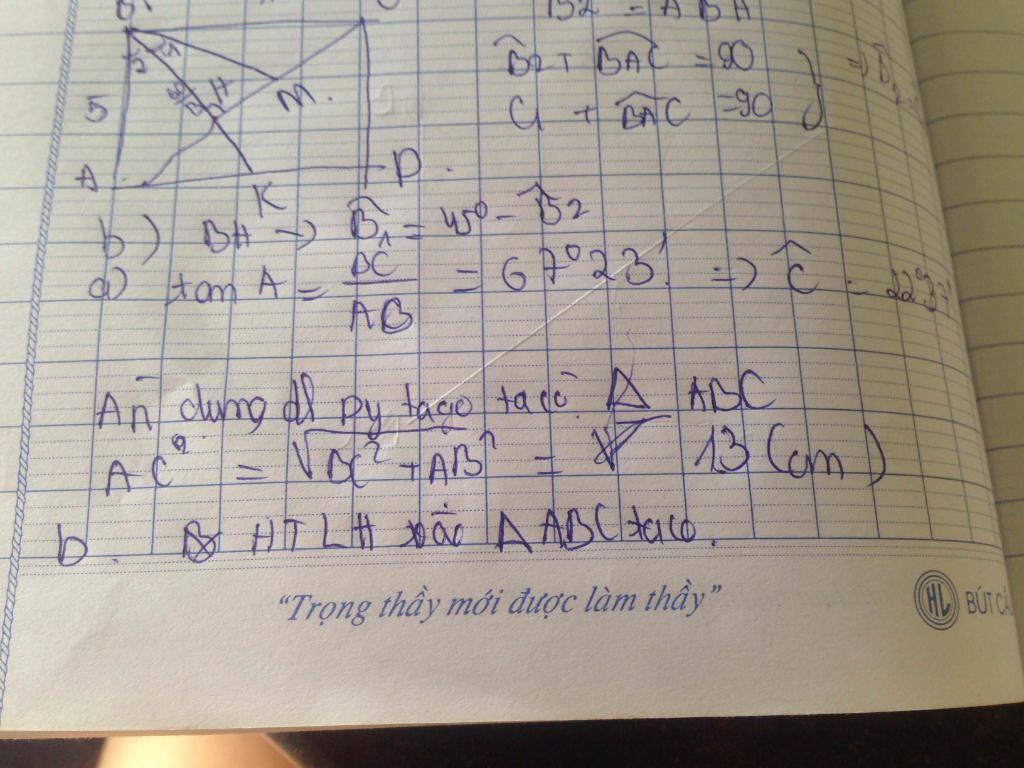 B2 = ABH
B2 + BAC = 90
C1 + BAC = 90
} => B
5
H
M.
A
K
D.
b) BH → B1 = 45° - B2
a) tan A = BC / AB = 67°23' => C = 22°37
Áp dụng đl py tago ta có Δ ABC
AC² = √BC² + AB² = √ 13 (cm)
b. HTLH vào Δ ABC ta có.
“Trọng thầy mới được làm thầy”
HL BÚT